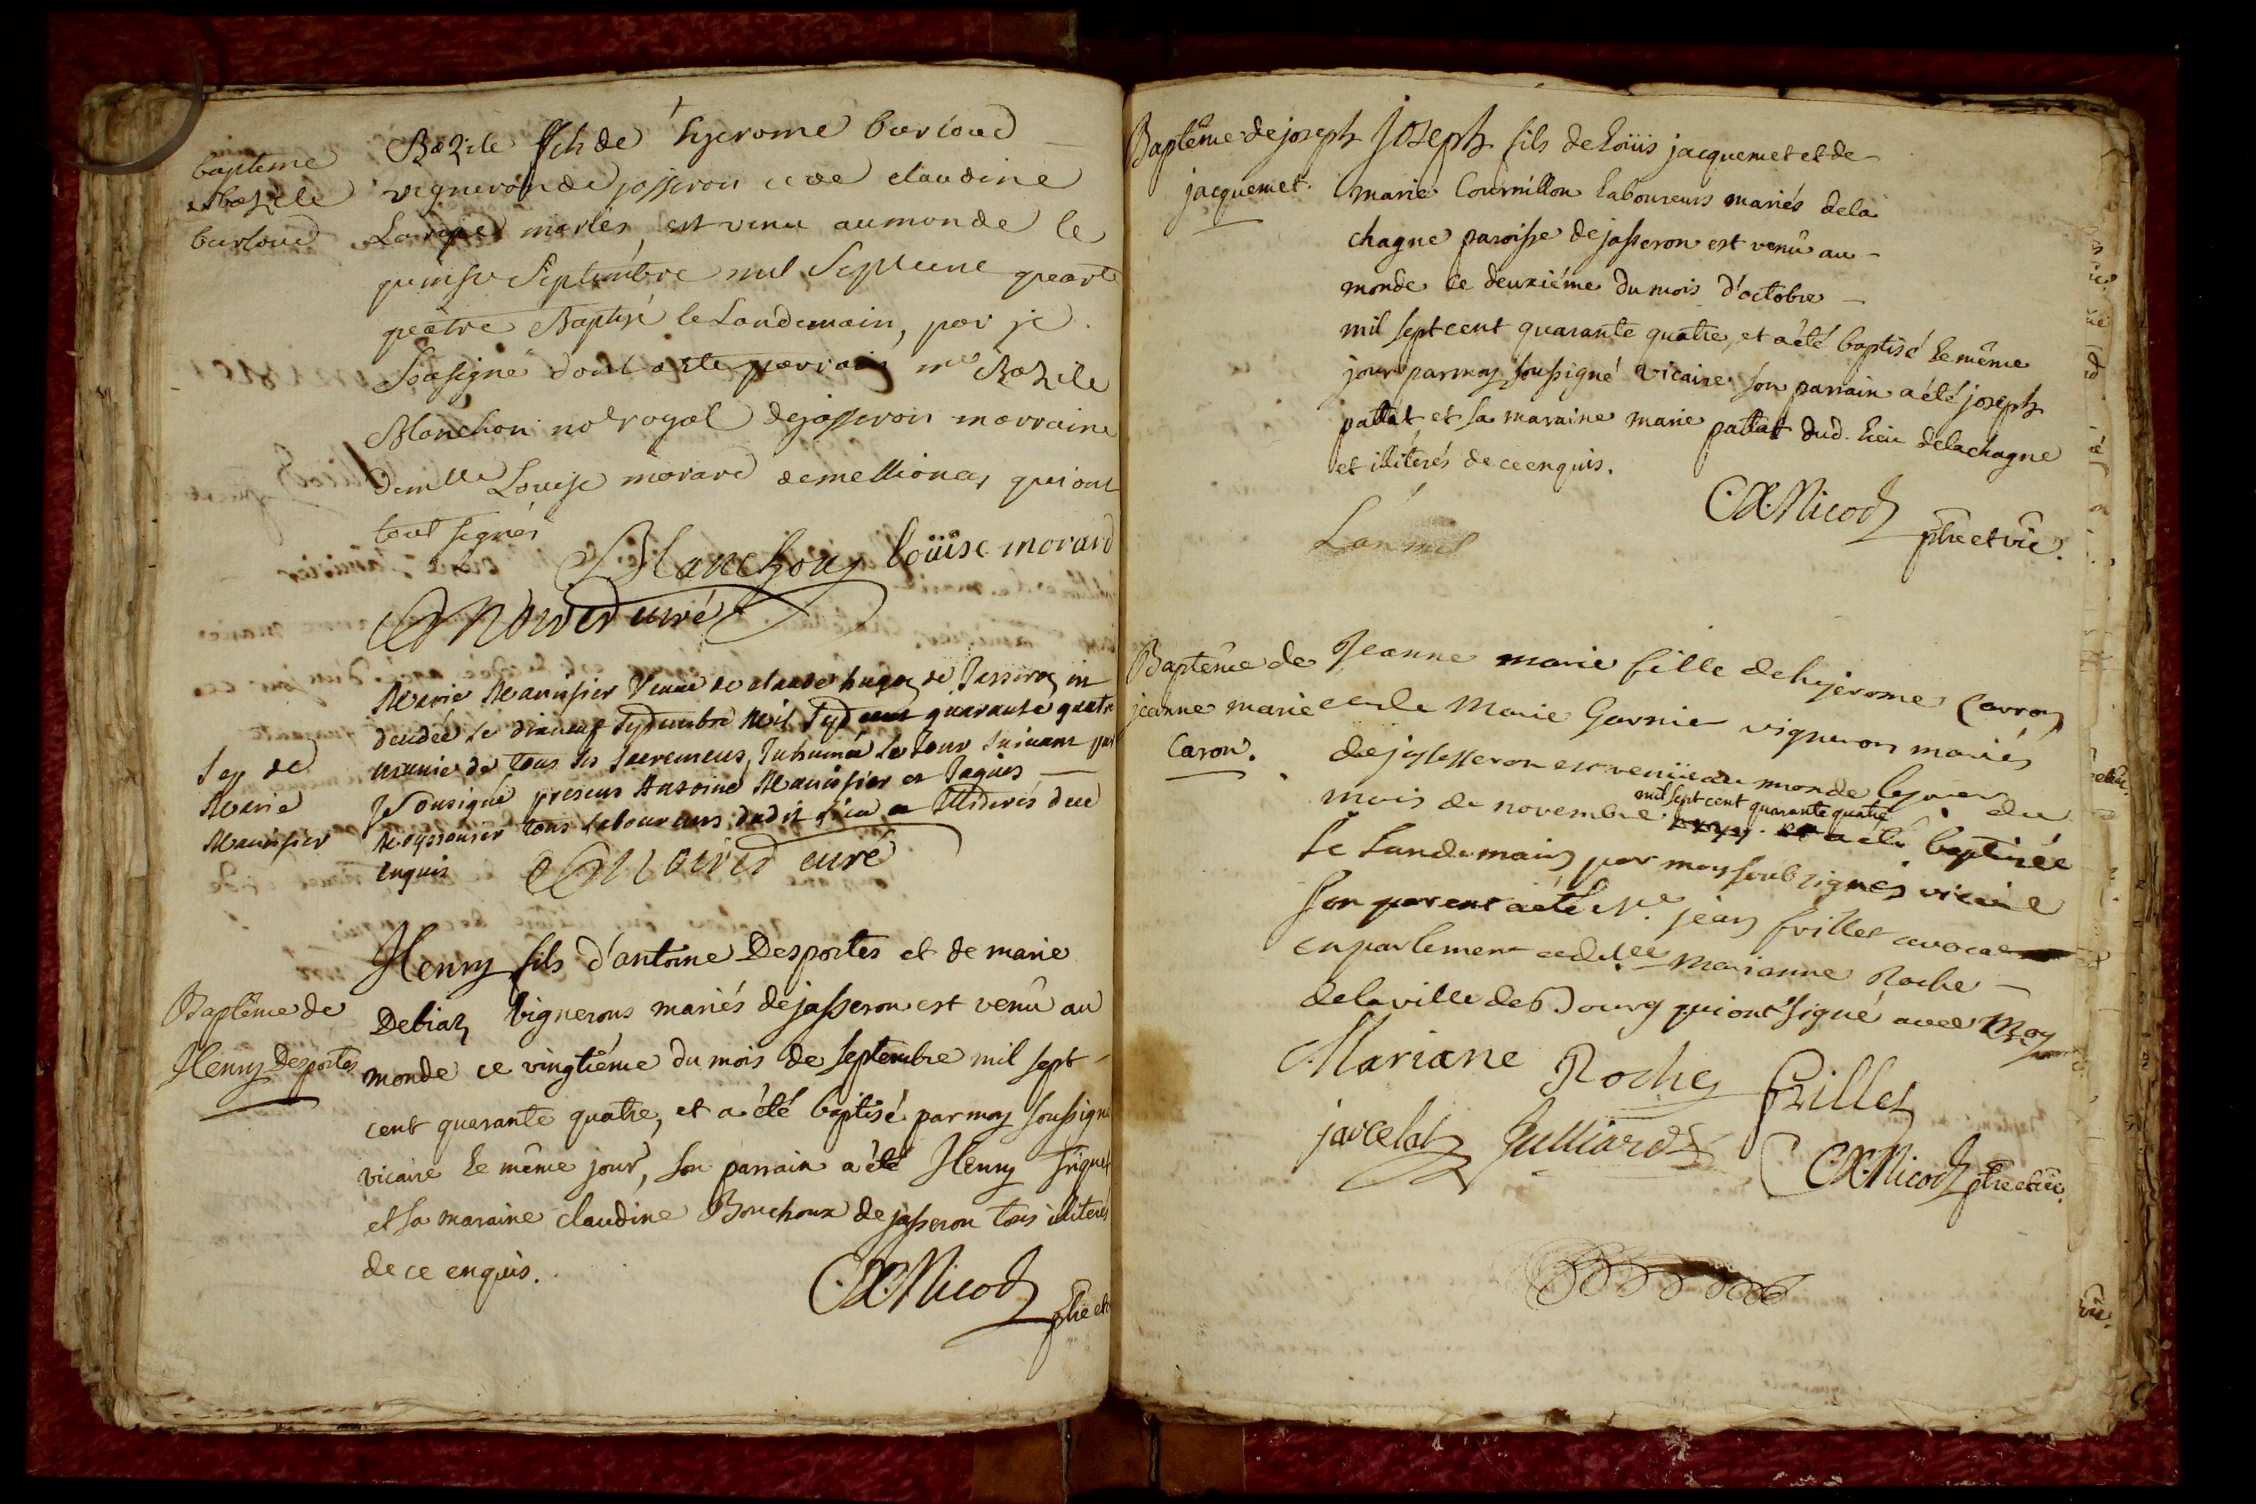 bapteme
Bazile
burloud
Bazile fils de hyerome burloud
vigneron de josseron et de claudine
mariés, est venu au monde le
quinse Septembre mil Sept cent quarte
quatre Baptisé le Landemain, par je
Sosigné dont a ete parrain mre Bazile
Blanchon nore royal de josseron marraine
demlle Louise morard de mellionas qui ont
tout signés
Blanchon loüise morard
curé
Sep de
Marie
Manissier
Marie Manissier Veuve de claude hugon de Jasseron
decedée le dixneuf Septembre Mil Sept cent quarante quatre
munie de tous les sacremens, Inhumée le Jour suivant par
Je Sousigné presens Antoine Manissier et Jaques
Meyssonier tous laboureurs dudit lieu Illiterés dece
enquis
curé
Baptême de
Henry Desportes
Henry fils d'antoine Desportes et de marie
Debiaz vignerons mariés de jasseron est venû au
monde ce vingtiéme du mois de septembre mil sept
cent quarante quatre, et a été baptisé par moy soussigné
vicaire le même jour, son parrain a été Henry
et sa maraine claudine Bouchoux de jasseron tous illiterés
de ce enquis.
Nicod
ptre et
Baptême de joseph
jacquemet.
Joseph fils de Loüis jacquemet et de
marie Cournillon Laboureurs mariés dela
chagne paroisse de jasseron est venû au
monde le deuxiéme du mois d'octobre
mil sept cent quarante quatre, et a été baptisé le même
jour par moy soussigné vicaire son parrain a été joseph
pattat et sa maraine marie pattat dud. Lieu delachagne
et illiterés de ce enquis.
Nicod
ptre et vic.
L'an mil
Baptême de
jeanne marie
Caron.
Jeanne marie fille de hyerome Carron
et de Marie Garnier vigneron mariés
de jasseron est venüe au monde le jour du
mois de novembre
mil sept cent quarante quatre
et a été baptisée
le Landemain par moy soubsigné vicaire
son parent a été Sr. jean frillet avocat
en parlement et dlle Marianne Roche
de la ville de Bourg qui ont signé avec Moy
Mariane Roche frillet
jarcelat Julliard
Nicod ptre et vic.